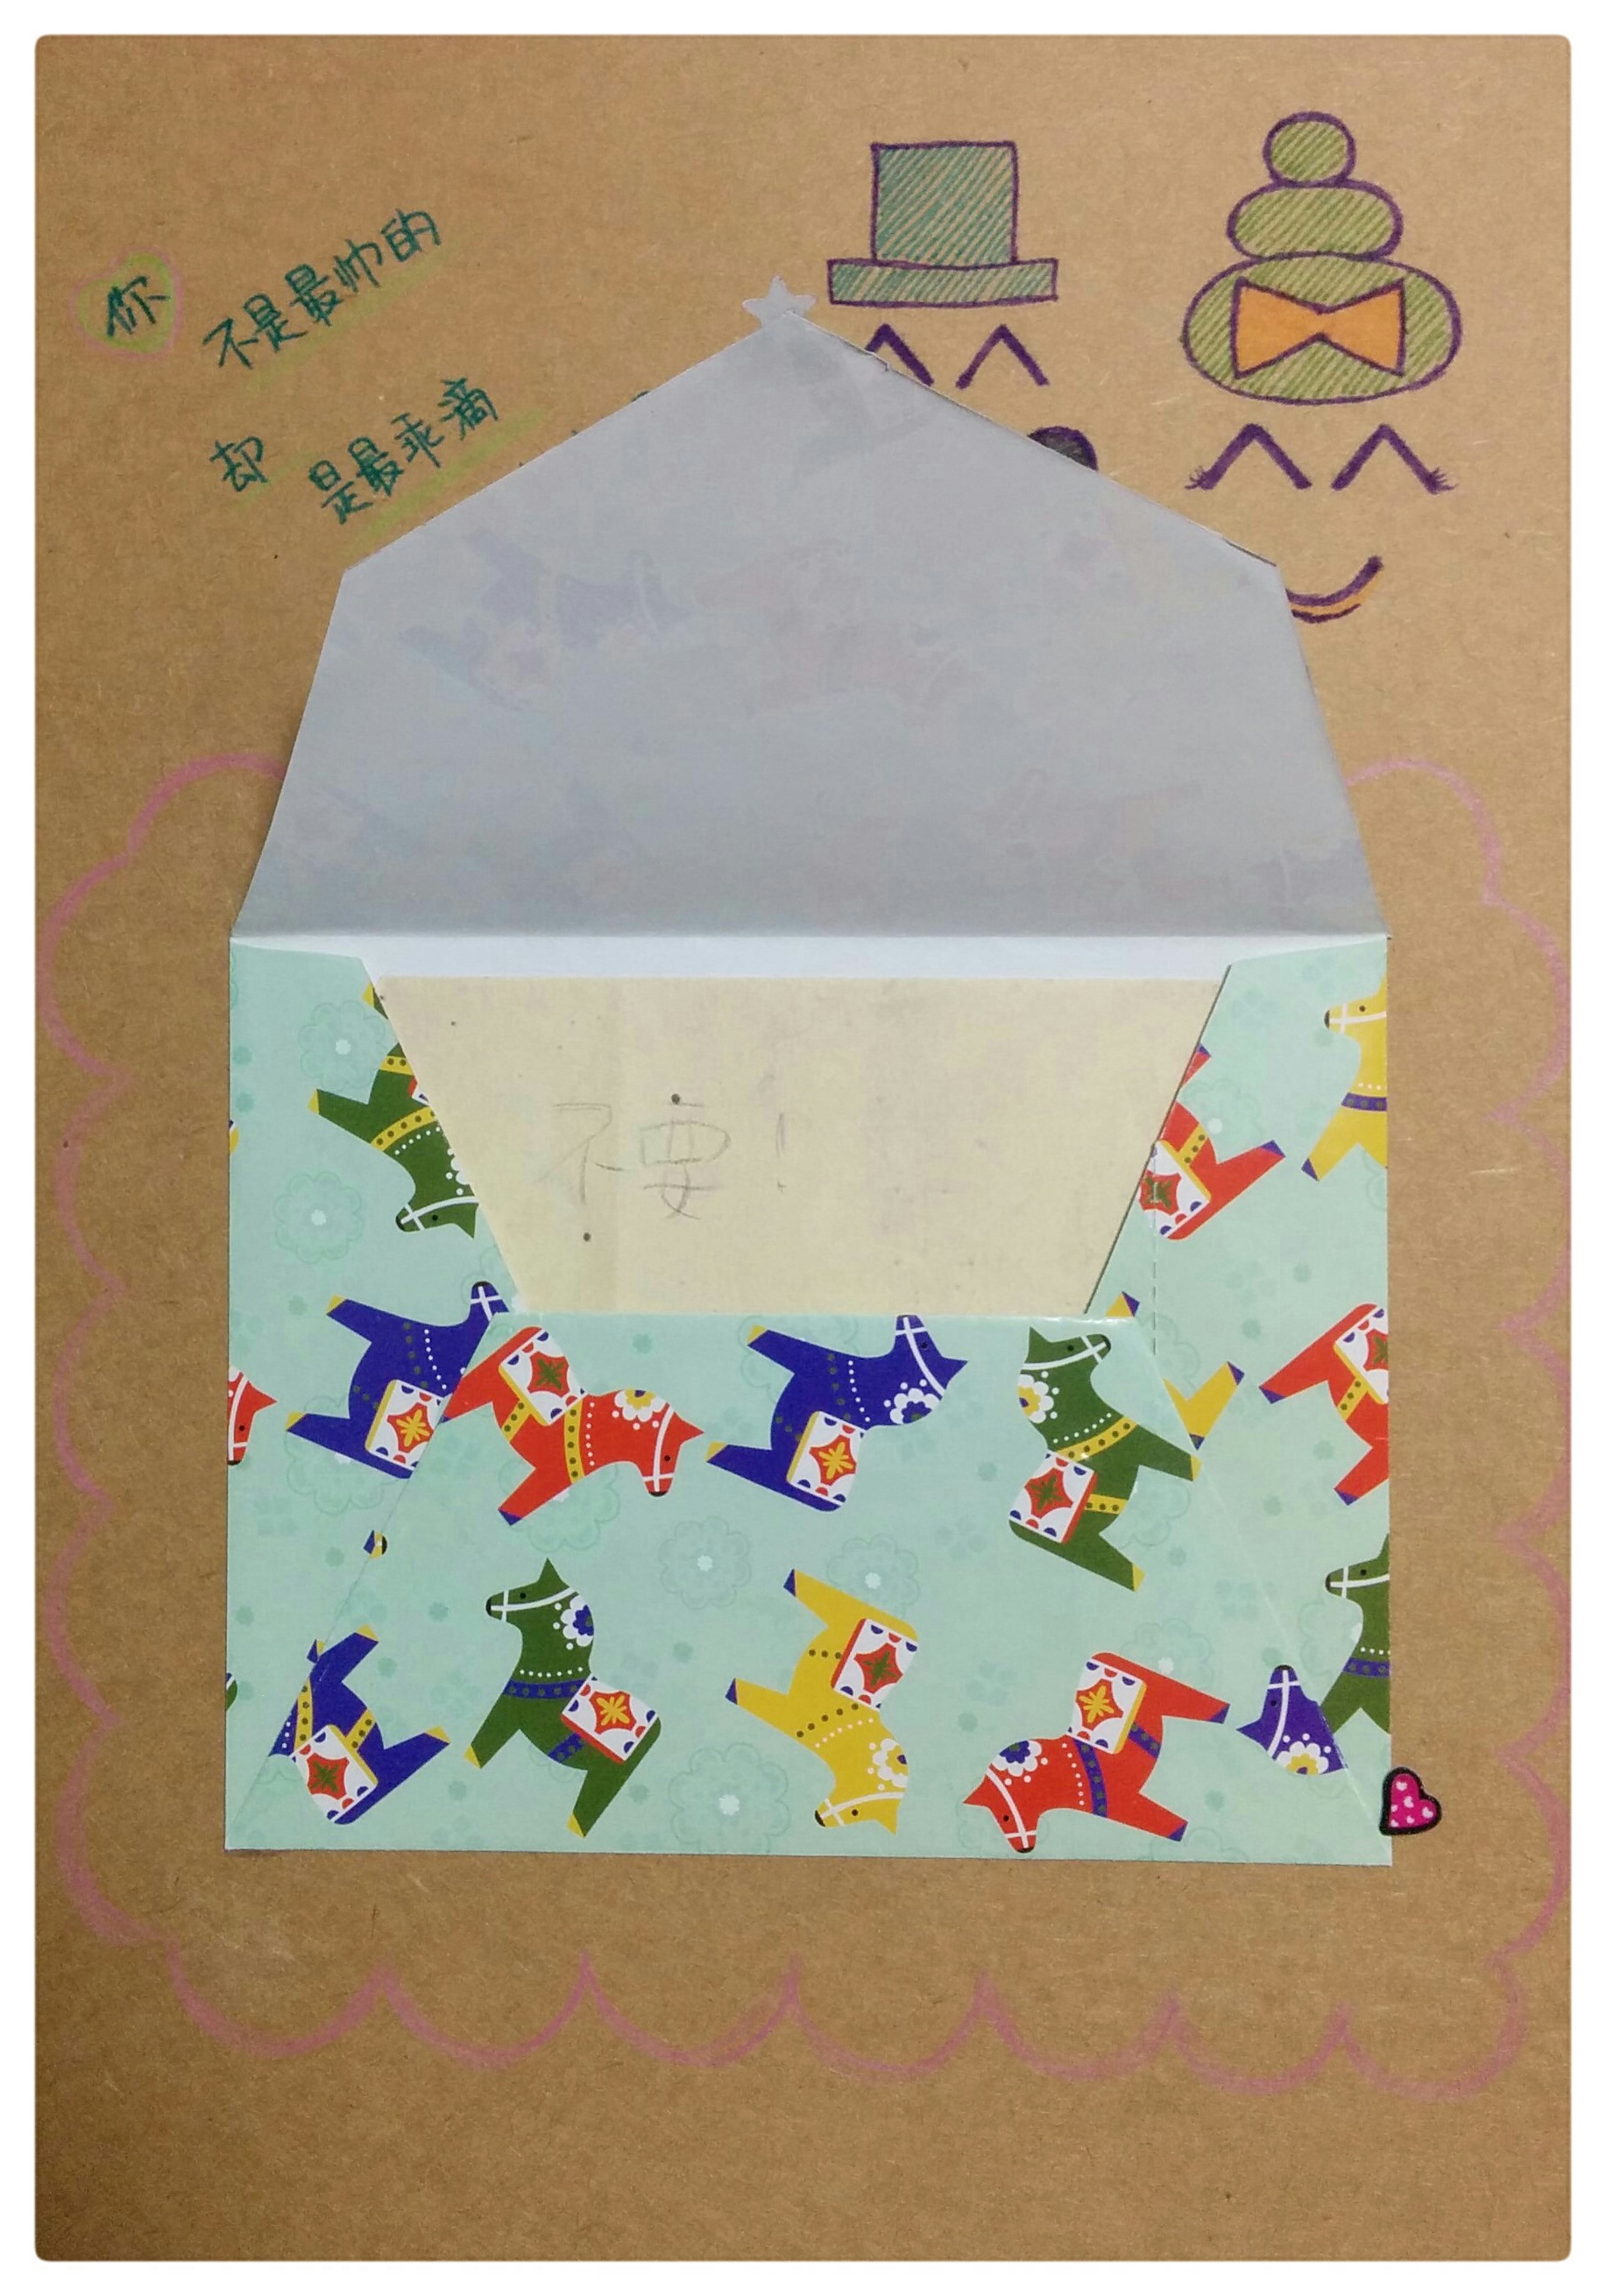 你 不是最帅的
却 是最乖滴
不要!